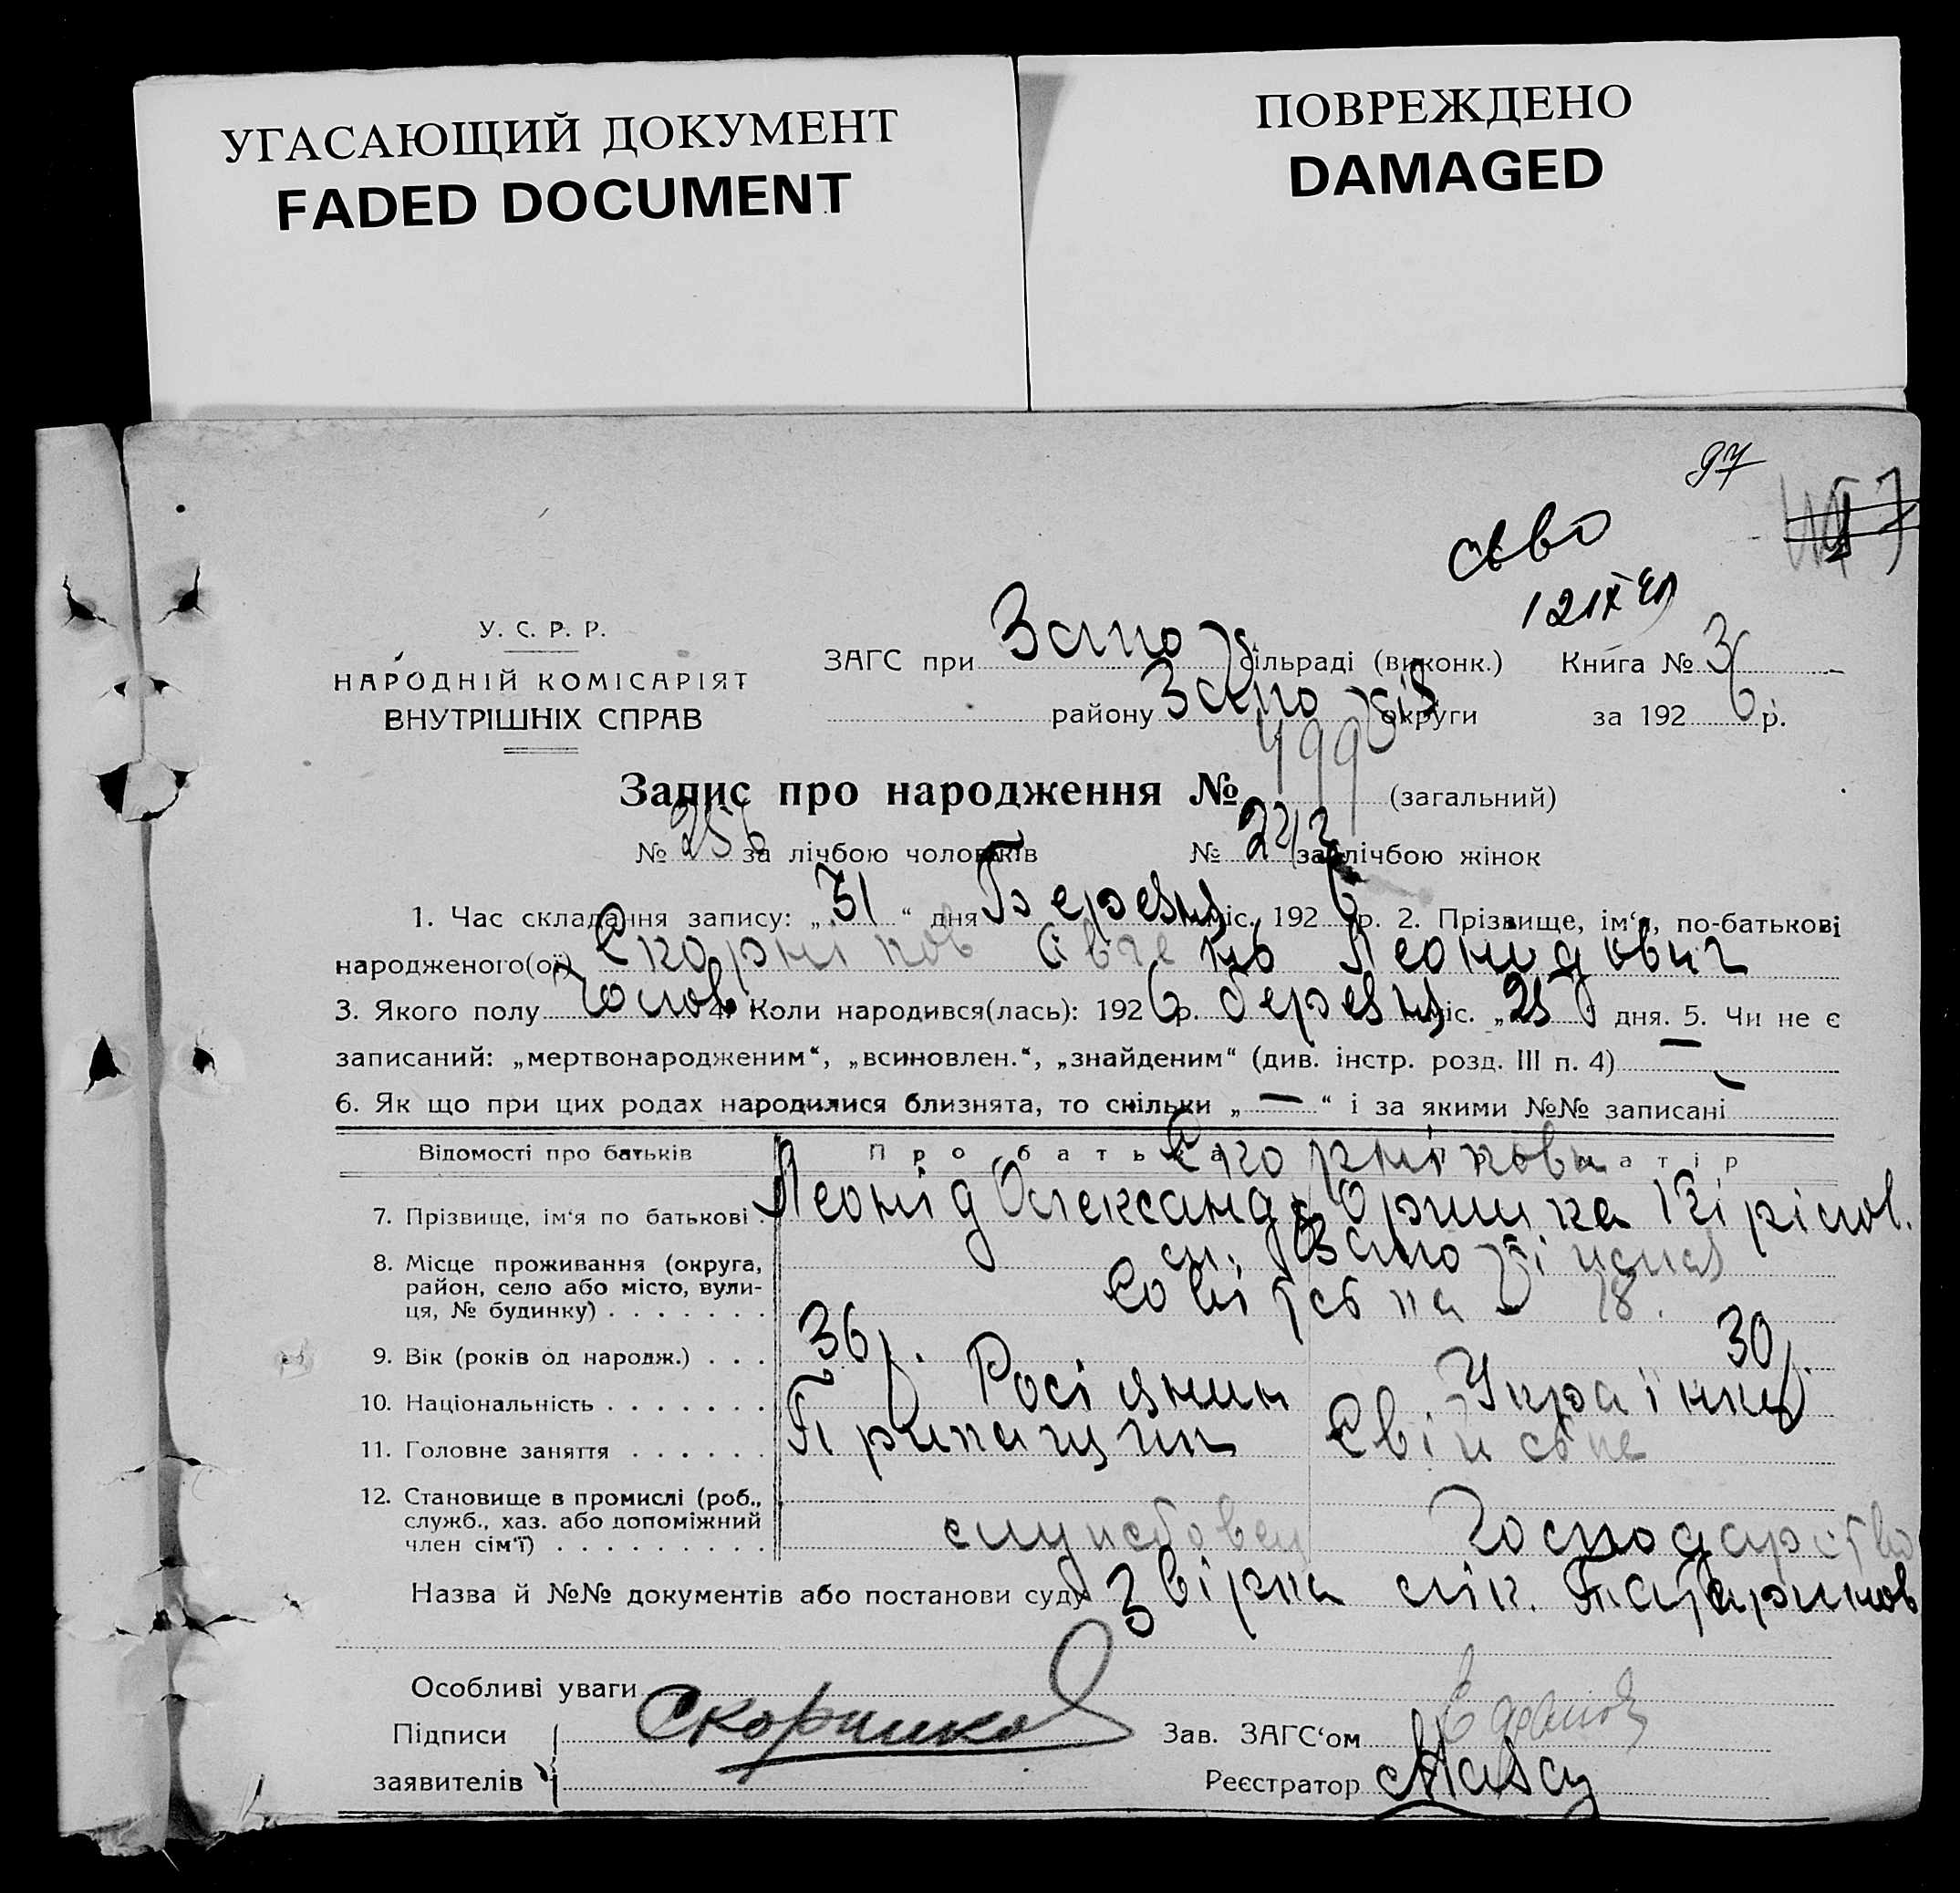 УГАСАЮЩИЙ ДОКУМЕНТ
FADED DOCUMENT
ПОВРЕЖДЕНО
DAMAGED
97
У. С. Р. Р.
НАРОДНІЙ КОМІСАРІЯТ
ВНУТРІШНІХ СПРАВ
ЗАГС при Запо сільраді (виконк.) Книга № 3
району Запо округи за 192 6 р.
Запис про народження № 499 (загальний)
№ 256 за лічбою чоловіків № за лічбою жінок
1. Час складання запису: „ 31 “ дня Березня міс. 192 6 р. 2. Прізвище, ім‘я, по-батькові
народженого(ої) Скорніков Євгеній Леонидович
3. Якого полу Чолов 4. Коли народився(лась): 192 6 р. березня міс. „ 25 “ дня. 5. Чи не є
записаний: „мертвонародженим“, „всиновлен.“, „знайденим“ (див. інстр. розд. III п. 4) —
6. Як що при цих родах народилися близнята, то скільки „ — “ і за якими №№ записані
Відомості про батьків Про батька матір
Скорнікови
7. Прізвище, ім‘я по батькові . Леонід Олександ Оришка Кірілов.
8. Місце проживання (округа, район, село або місто, вулиця, № будинку) . . . . . . . ст. Запоріжжя
Совітська 18.
9. Вік (років од народж.) . . . 36 р. 30 р.
10. Національність . . . . . . . Росіянин Українка
11. Головне заняття . . . . . . Прикащик Свійське
12. Становище в промислі (роб.,
служб., хаз. або допоміжний
член сім‘ї) . . . . . . . . . . службовец Господарство
Назва й №№ документів або постанови суду Звірка лік. Татаринов
Особливі уваги
Підписи Скорников Зав. ЗАГС‘ом
заявителів Реєстратор